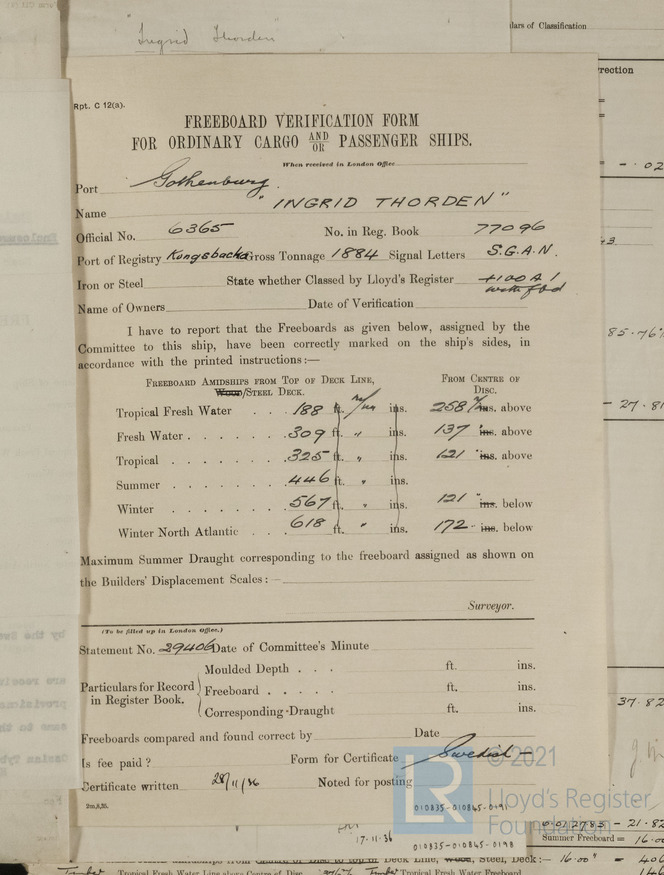 Ingrid Thorden
lars of Classification
rection
Rpt. C 12(a).
FREEBOARD VERIFICATION FORM
FOR ORDINARY CARGO AND OR PASSENGER SHIPS.
When received in London Office
Port Gothenburg.
Name "INGRID THORDEN"
Official No. 6365 No. in Reg. Book 77096
Port of Registry Kungsbacka Gross Tonnage 1884 Signal Letters S.G.A.N.
Iron or Steel State whether Classed by Lloyd's Register +100A1
with fbd
Name of Owners Date of Verification
I have to report that the Freeboards as given below, assigned by the
Committee to this ship, have been correctly marked on the ship's sides, in
accordance with the printed instructions:—
FREEBOARD AMIDSHIPS FROM TOP OF DECK LINE, FROM CENTRE OF
Wood/STEEL DECK. DISC.
Tropical Fresh Water . . . 188 ft. m/m ins. 258 m/m ins. above
Fresh Water . . . . . . 309 ft. " ins. 137 " ins. above
Tropical . . . . . . . 325 ft. " ins. 121 " ins. above
Summer . . . . . . . 446 ft. " ins.
Winter . . . . . . . 567 ft. " ins. 121 " ins. below
Winter North Atlantic . . . 618 ft. " ins. 172 - ins. below
Maximum Summer Draught corresponding to the freeboard assigned as shown on
the Builders' Displacement Scales:—
Surveyor.
(To be filled up in London Office.)
Statement No. 29406 Date of Committee's Minute
Particulars for Record in Register Book.
Moulded Depth . . . ft. ins.
Freeboard . . . . . ft. ins.
Corresponding Draught ft. ins.
Freeboards compared and found correct by Date
Is fee paid? Form for Certificate Swedish -
Certificate written 28/11/36 Noted for posting
2m,8,35.
010835-010845-0191
© 2021
LR
Lloyd's Register
Foundation
17-11-36
010835-010845-0198
- .02
85.76
- 27.81
37.82
0.012785 - 21.82
Summer Freeboard = 16.00
Deck Line, Wood, Steel, Deck:— 16.00"
Timber Tropical Fresh Water Line above Centre of Disc Timber Tropical Fresh Water Freeboard